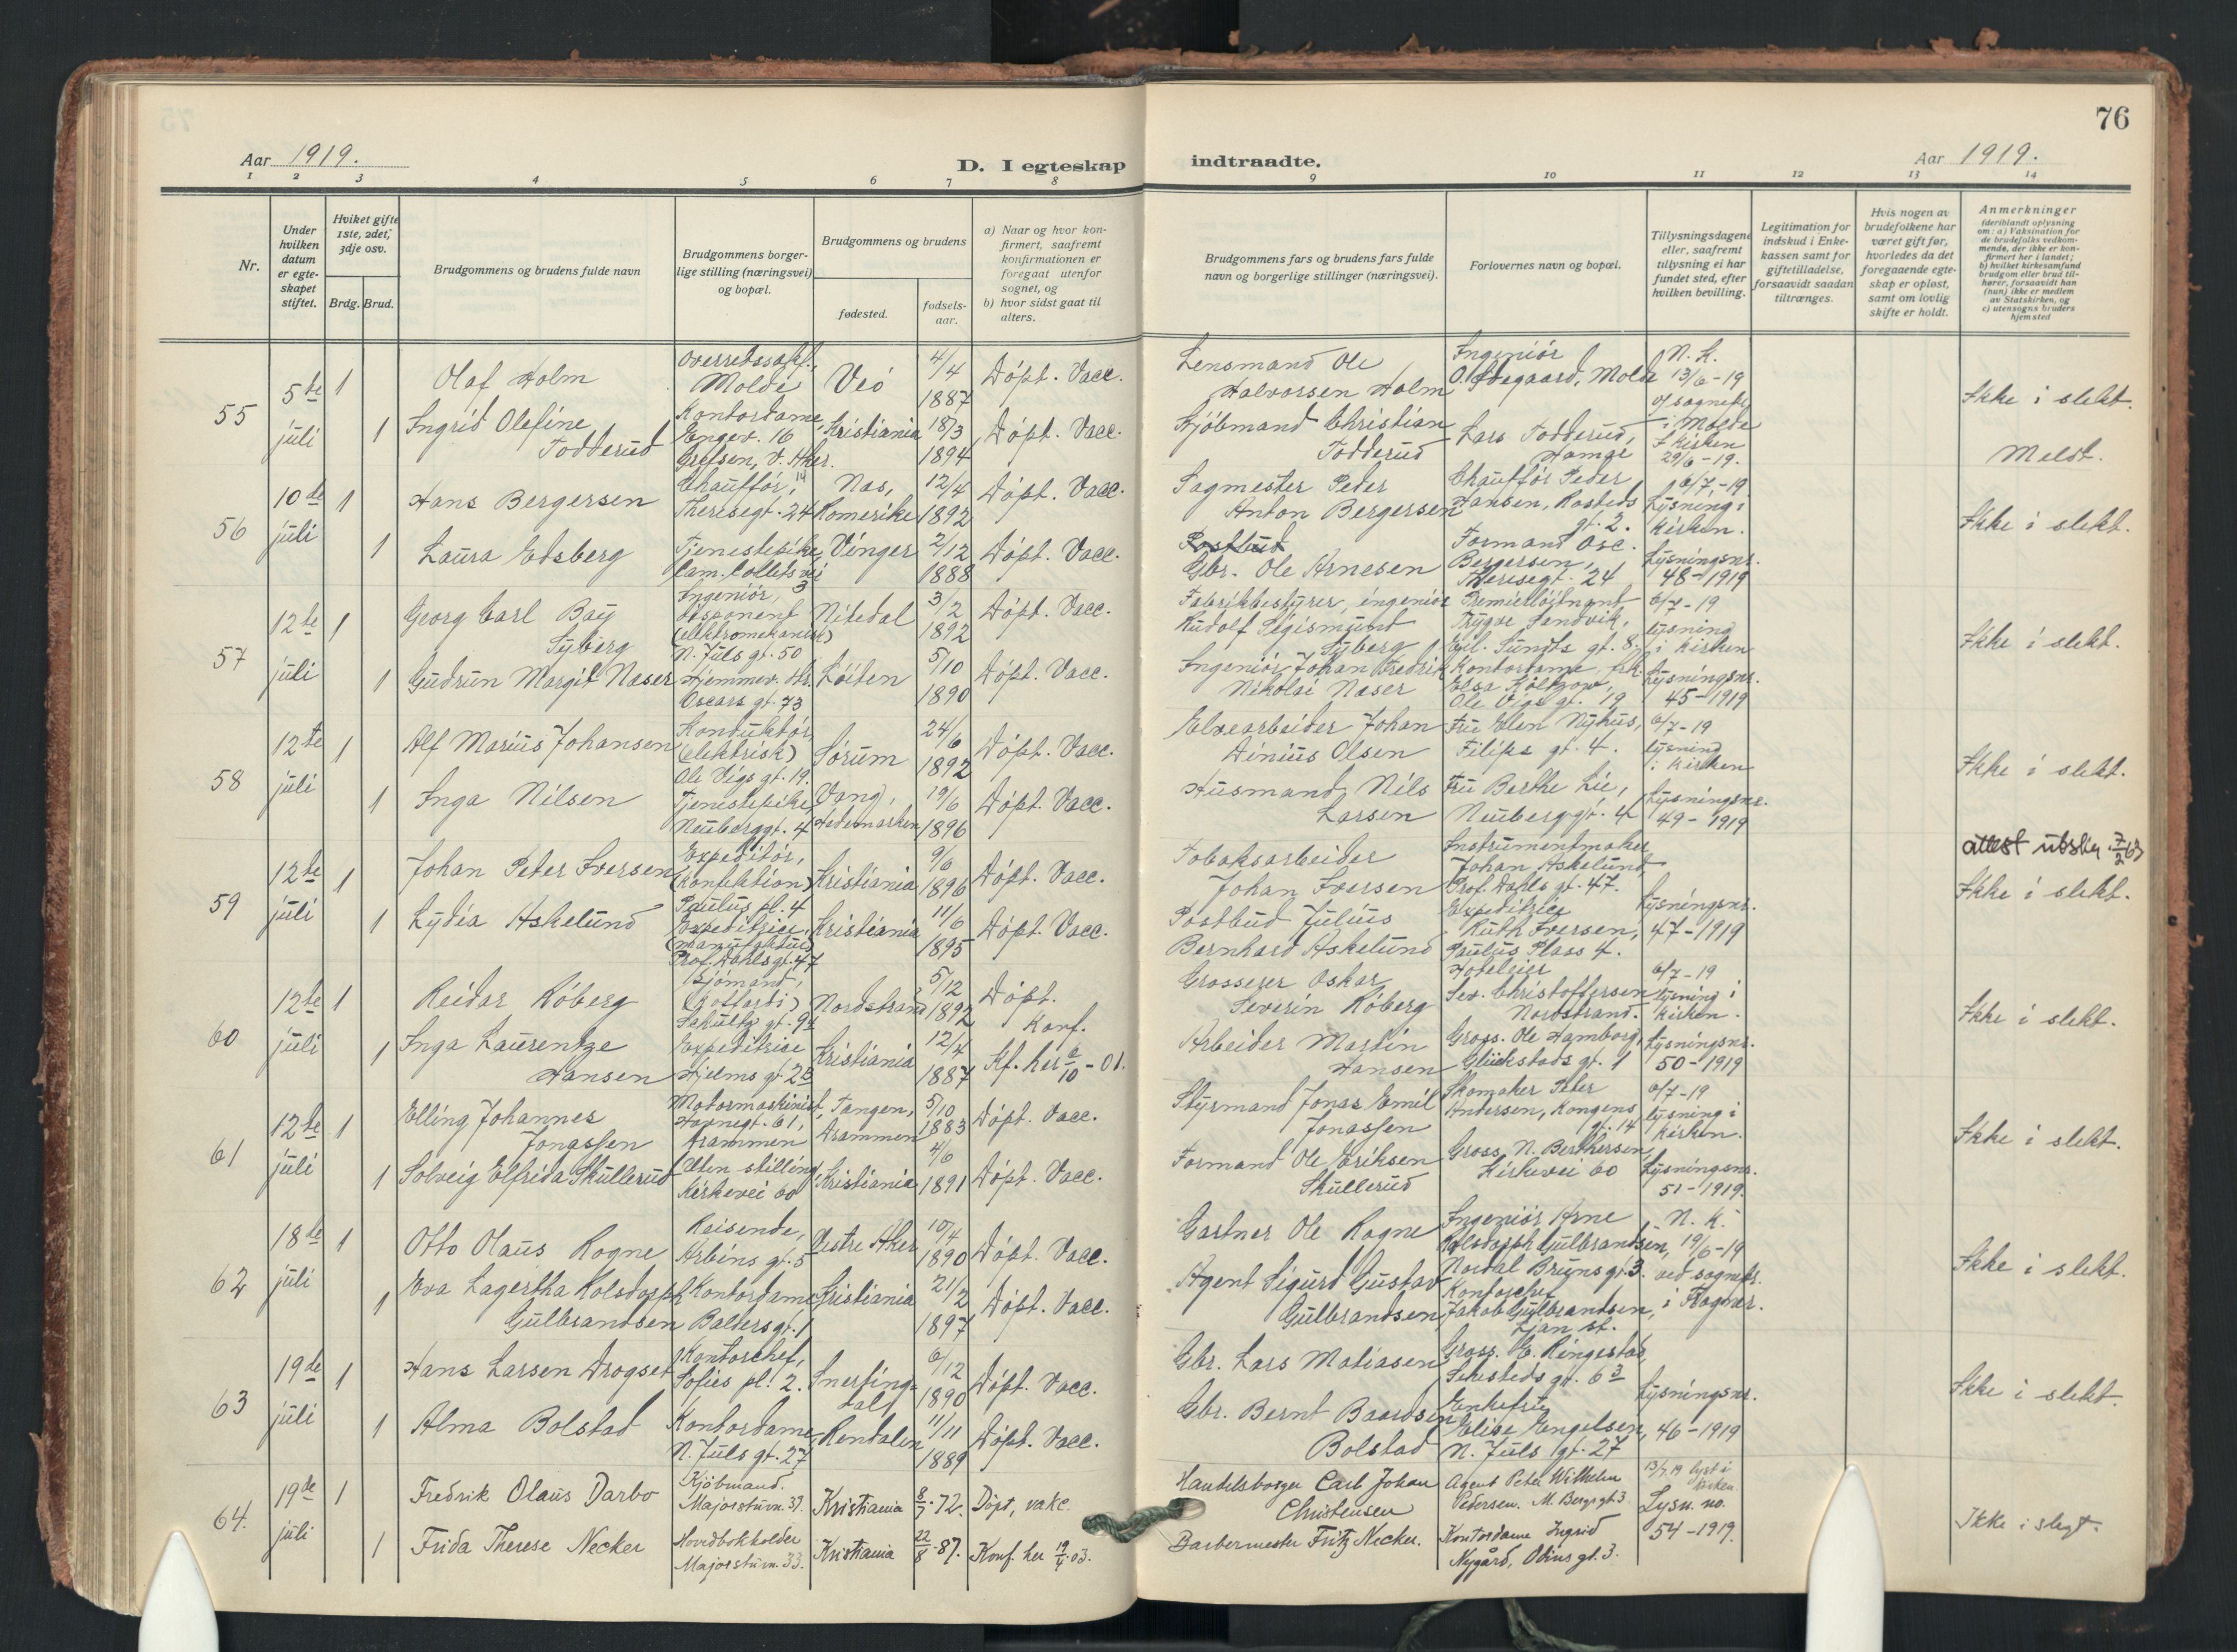 76
Aar 1919.
D. I egteskap indtraadte.
Aar 1919.
1 2 3 4 5 6 7 8 9 10 11 12 13 14
Nr.
Under hvilken datum er egteskapet stiftet.
Hviket gifte 1ste, 2det, 3dje osv.
Brdg. Brud.
Brudgommens og brudens fulde navn
Brudgommens borgerlige stilling (næringsvei) og bopæl.
Brudgommens og brudens
fødested.
fødselsaar.
a) Naar og hvor konfirmert, saafremt konfirmationen er foregaat utenfor sognet, og
b) hvor sidst gaat til alters.
Brudgommens fars og brudens fars fulde navn og borgerlige stillinger (næringsvei).
Forlovernes navn og bopæl.
Tillysningsdagene eller, saafremt tillysning ei har fundet sted, efter hvilken bevilling.
Legitimation for indskud i Enkekassen samt for giftetilladelse, forsaavidt saadan tiltrænges.
Hvis nogen av brudefolkene har været gift før, hvorledes da det foregaaende egteskap er opløst, samt om lovlig skifte er holdt.
Anmerkninger
(deriblandt oplysning om: a) Vaksination for de brudefolks vedkommende, der ikke er konfirmert her i landet; b) hvilket kirkesamfund brudgom eller brud tilhører, forsaavidt han (hun) ikke er medlem av Statskirken, og c) utensogns bruders hjemsted
55 5te juli
1 Olaf Holm Overretssakf., Molde Veö 4/4 1887 Döpt. Vacc. Lensmand Ole Halvorsen Holm Ingeniör O. Ödegaard, Molde N. K. 13/6-19 v/ sognepr. i Molde Ikke i slekt.
1 Ingrid Olefine Todderud Kontordame, Engev. 16 Grefsen, V. Aker. Kristiania 18/3 1894 Döpt. Vacc. Kjöbmand Christian Todderud Lars Todderud, Hamar kirken 29/6-19.
56 10de juli
1 Hans Bergersen Chaufför, Theresegt. 24 Nas, Romerike 12/4 1892 Döpt. Vacc. Sagmester Peder Anton Bergersen Chaufför Peder Hansen, Rosteds gt. 2. 6/7-19 Lysning i kirken. Ikke i slekt.
1 Laura Edsberg Tjenestepike, Cam. Colletsvei 3 Vinger 2/12 1888 Döpt. Vacc. Gbr. Ole Arnesen Formand Osc. Bergersen, Theresegt. 24 Lysningsnr. 48-1919
57 12te juli
1 Georg Carl Bay Syberg Ingeniör, disponent (elektromekanisk) N. Juls gt. 50 Nitedal 3/2 1892 Döpt. Vacc. Fabrikbestyrer, ingeniör Rudolf Sigismund Syberg Premierlöjtnant Trygve Sandvik, Eil. Sundts gt. 8. 6/7-19 lysning i kirken Ikke i slekt.
1 Gudrun Margit Naser Hjemmev. Oscars gt. 73 Löiten 5/10 1890 Döpt. Vacc. Ingeniör Johan Fredrik Nikolai Naser Kontordame frk. Elsa Költzow, Ole Vigs gt. 19 Lysningsnr. 45-1919
58 12te juli
1 Alf Marius Johansen Konduktör (elektrisk) Ole Vigs gt. 19. Sörum 24/6 1892 Döpt. Vacc. Elvearbeider Johan Dinius Olsen Fru Elen Nyhus, Filips gt. 4. 6/7-19 lysning i kirken Ikke i slekt.
1 Inga Nilsen Tjenestepike, Neuberggt. 4 Vang, Hedemarken 19/6 1896 Döpt. Vacc. Husmand Nils Larsen Fru Berthe Lie, Neuberggt. 4 Lysningsnr. 49-1919
59 12te juli
1 Johan Peter Iversen Expeditör, (konfektion) Paulus pl. 4 Kristiania 9/6 1896 Döpt. Vacc. Tobaksarbeider Johan Iversen Instrumentmaker Johan Askelund, Prof. Dahls gt. 47. attest utskr. 7/2 63 Ikke i slekt.
1 Lydia Askelund Expeditrice, (manufaktur) Prof. Dahlsgt. 47 Kristiania 11/6 1895 Döpt. Vacc. Postbud Julius Bernhard Askelund Expeditrice Ruth Iversen, Paulus Plass 4. Lysningsnr. 47-1919
60 12te juli
1 Reidar Röberg Sjömand, (koffardi) Schultz gt. 9 Nordstrand 5/12 1892 Döpt. Konf. Grosserer Oskar Severin Röberg Hoteleier Sev. Christoffersen Nordstrand. 6/7-19 lysning i kirken. Ikke i slekt.
1 Inga Laurentze Hansen Expeditrice Hjelms gt. 2 Kristiania 12/4 1887 Kf. her 6/10-01. Arbeider Martin Hansen Gross. Ole Hamborg, Glückstads gt. 1 Lysningsnr. 50-1919
61 12te juli
1 Elling Johannes Jonassen Motormaskinist, Havnegt. 61, Drammen Tangen, Drammen 5/10 1883 Döpt. Vacc. Styrmand Jonas Emil Jonassen Skomaker Peter Andersen, Kongens gt. 14 6/7-19 lysning i kirken. Ikke i slekt.
1 Solveig Elfrida Skullerud Uten stilling, Kirkevei 60 Kristiania 4/6 1891 Döpt. Vacc. Formand Ole Eriksen Skullerud Gross. N. Berthersen, Kirkevei 60 Lysningsnr. 51-1919.
62 18de juli
1 Otto Olaus Rogne Reisende, Arbins gt. 5 Vestre Aker 10/4 1890 Döpt. Vacc. Gartner Ole Rogne Ingeniör Arne Kolsdorph Gulbrandsen, Nordal Brunsgt. 3. N. K. 19/6-19 ved sognepr. i Fragner. Ikke i slekt.
1 Eva Lagertha Kolsdorph Gulbrandsen Kontordame Baldersgt. 1 Kristiania 21/2 1897 Döpt. Vacc. Agent Sigurd Gustav Gulbrandsen Kontorchef Jakob Gulbrandsen, Ljan st.
63 19de juli
1 Hans Larsen Drogset Kontorchef, Sofies pl. 2. 6/12 1890 Döpt. Vacc. Gbr. Lars Matiasen Gross. E. Ringestad, Sehesteds gt. 6 Ikke i slekt.
1 Alma Bolstad Kontordame N. Juls gt. 27 Rendalen 11/11 1889 Döpt. Vacc. Gbr. Bernt Baardsen Bolstad Enkefru Elise Engelsen, N. Juls gt. 27 Lysningsnr. 46-1919
64. 19de juli
1 Fredrik Olaus Darbo Kjöbmand. Majorstuvn. 33. Kristiania 8/7.72. Döpt, vakc. Handelsborger Carl Johan Christensen Agent Peter Wilhelm Pedersen. M. Bergsgt 3. 13/7.19 lyst i kirken Ikke i slegt.
1 Frida Therese Necker Hovedbokholder Majorstuvn. 33. Kristiania 22/8.87. Konf. her 19/4.03. Barbermester Fritz Necker. Kontordame Ingrid Nygård, Odins gt. 3. Lysn. no. 54-1919.